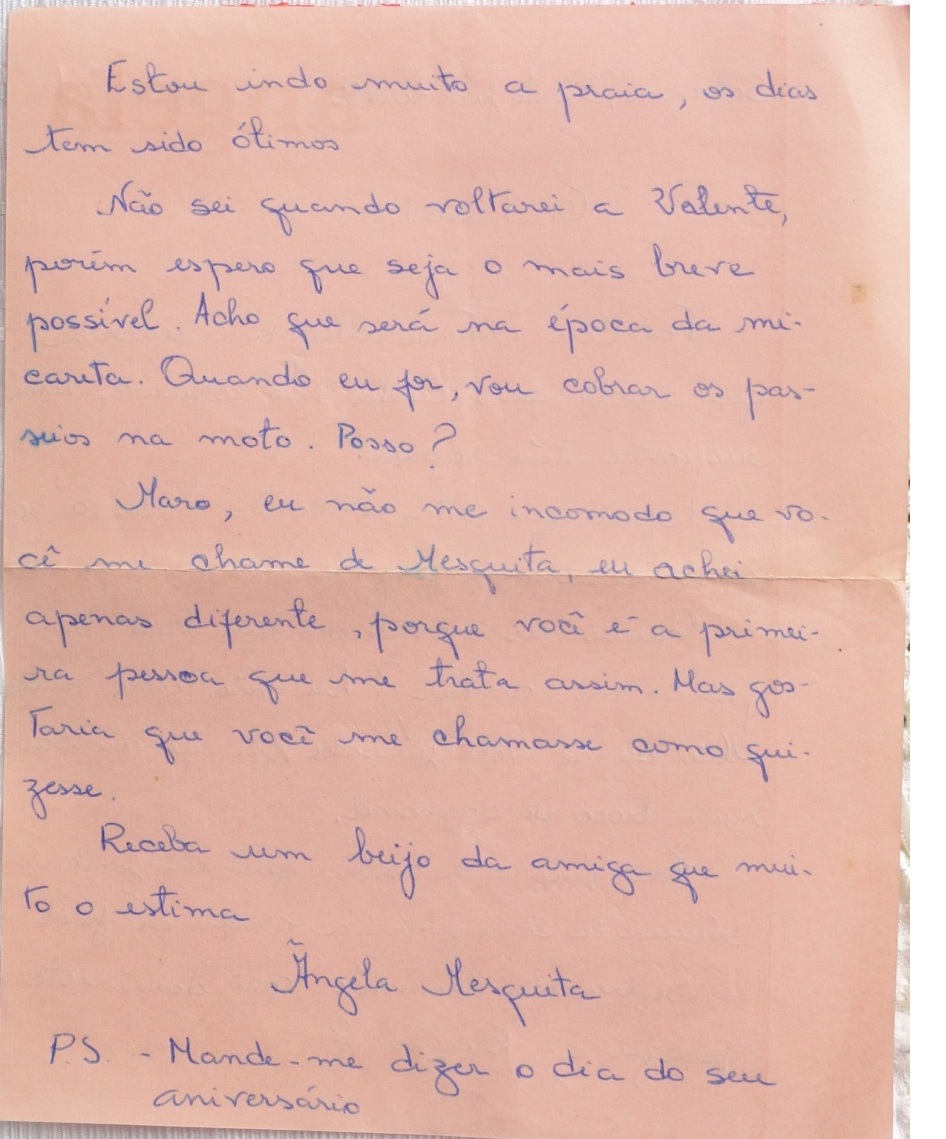 Estou indo muito a praia, os dias
tem sido ótimos
Não sei quando voltarei a Valente,
porém espero que seja o mais breve
possível. Acho que será na época da mi-
careta. Quando eu for, vou cobrar os pas-
seios na moto. Posso?
Maro, eu não me incomodo que vo-
cê me chame de Mesquita, eu achei
apenas diferente, porque você é a primei-
ra pessoa que me trata assim. Mas gos-
taria que você me chamasse como qui-
zesse.
Receba um beijo da amiga que mui-
to o estima
Ângela Mesquita
P.S. - Mande-me dizer o dia do seu
aniversário